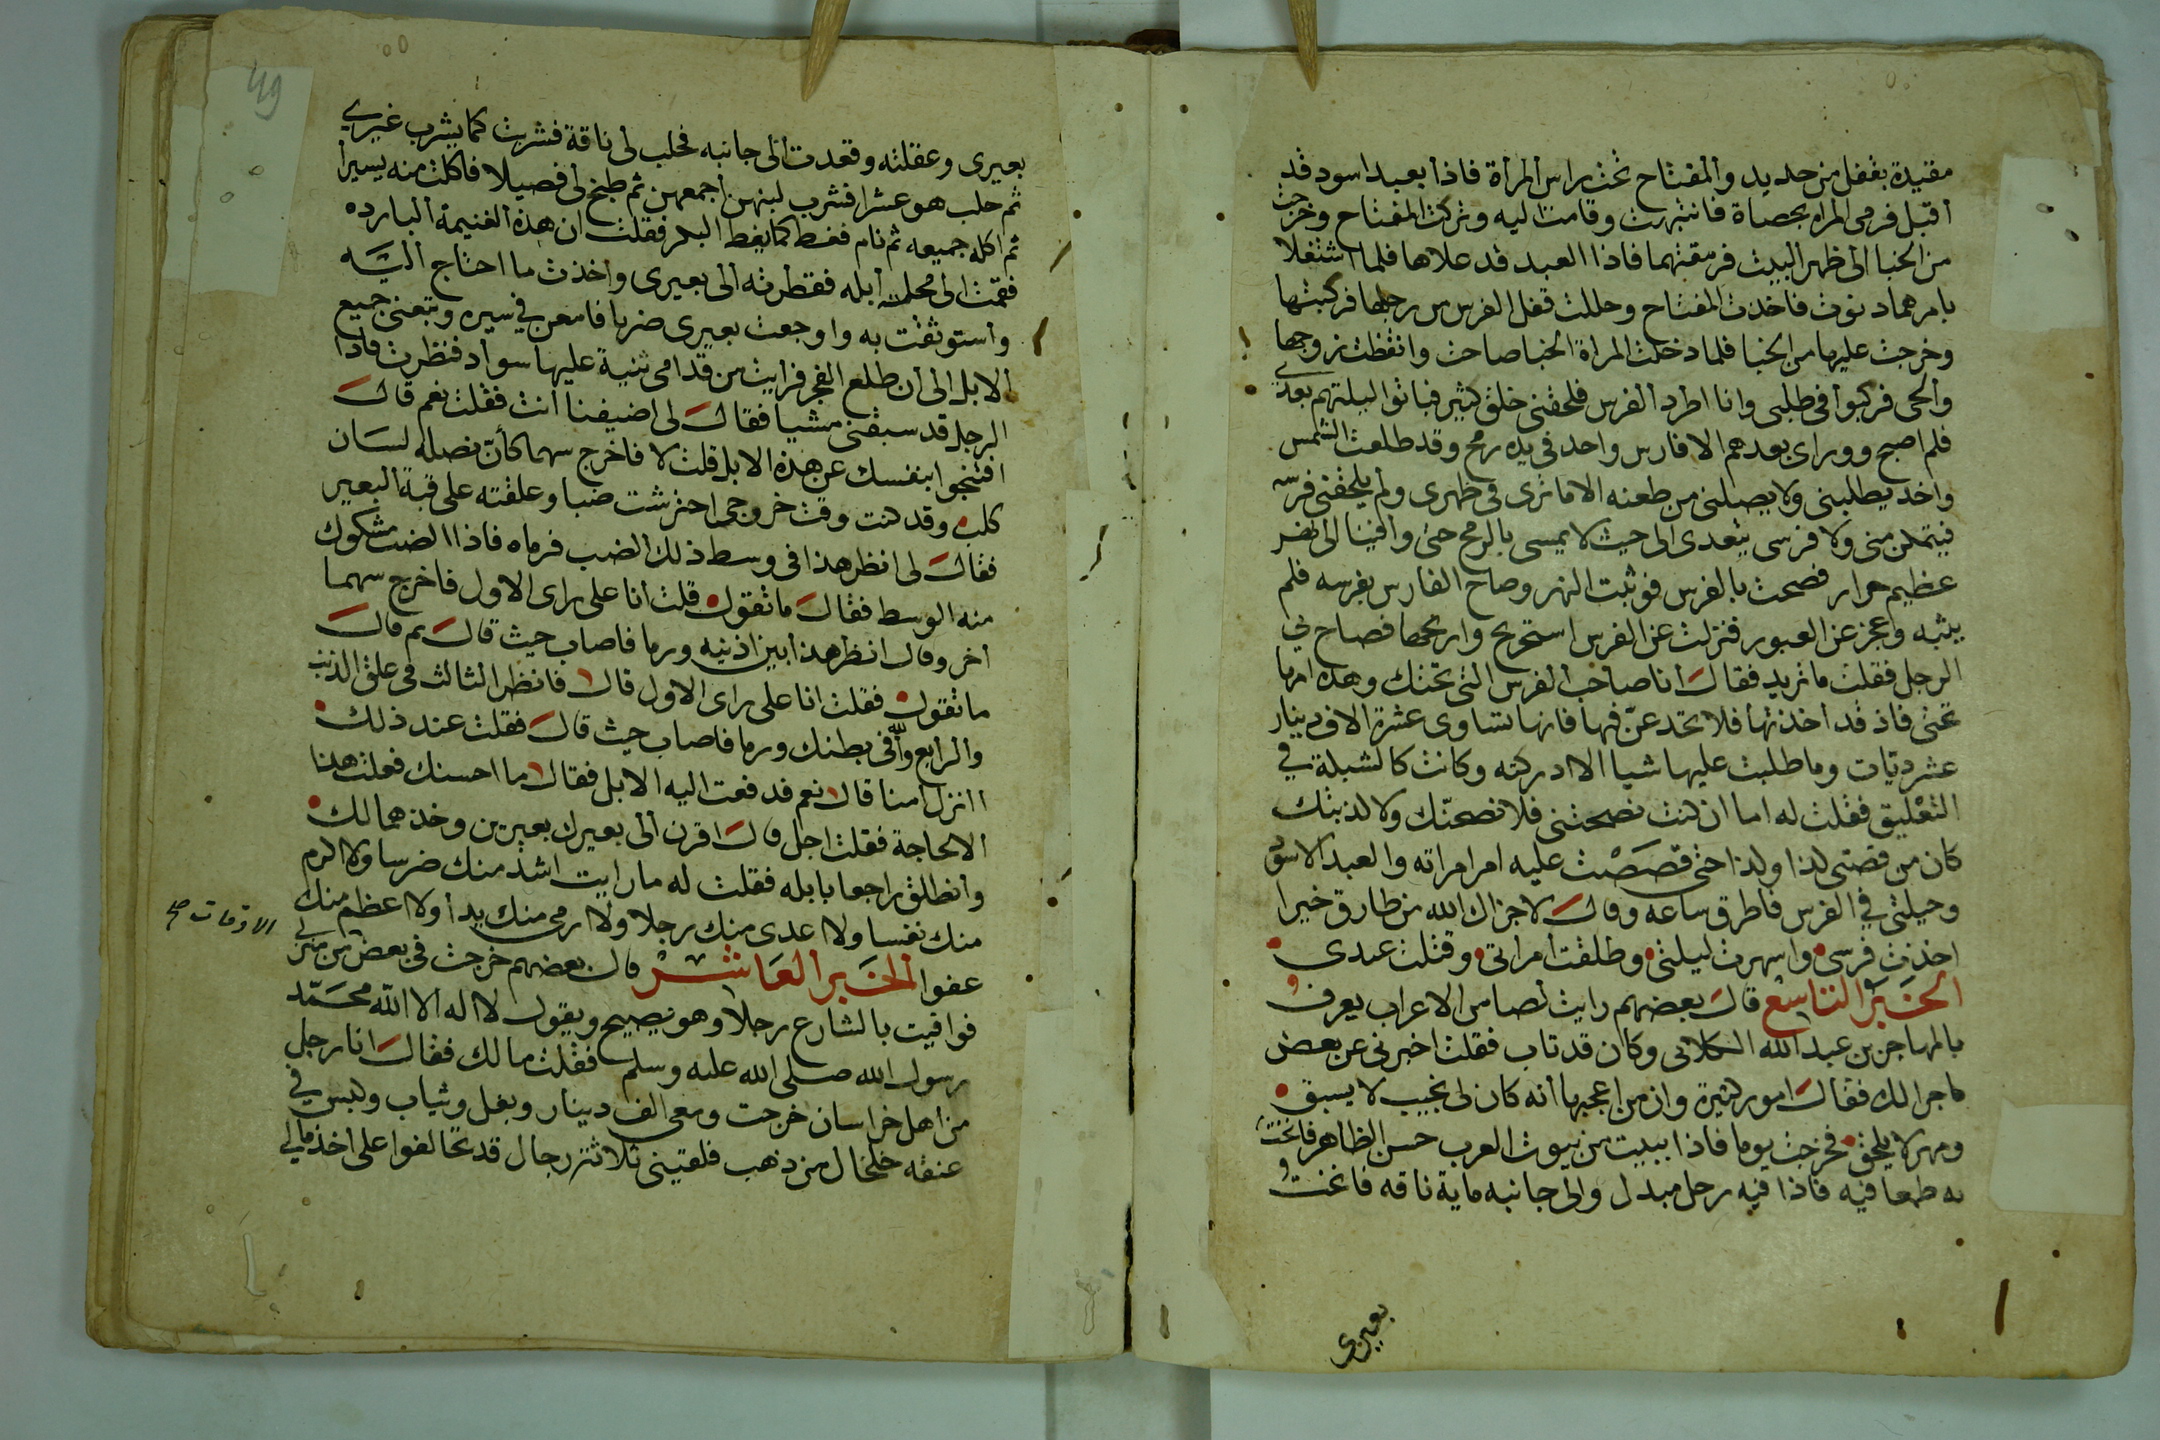 مقيدة بقفل من حديد والمفتاح تحت راس المرأة فاذا بعبد اسود قد
أقبل فرمى المراه بحصاة فانتبهت وقامت اليه وتركت المفتاح وخرجت
من الخبا الى ظهر البيت فرمقتهما فاذا العبد قد علاها فلما اشتغلا
بامرهما دنوت فاخذت المفتاح وحللت قفل الفرس من رجلها فركبتها
وخرجت عليها من الخبا فلما دخلت المراة الخبا صاحت وانقظت زوجها
والحى فركبوا فى طلبى وانا اطرد الفرس فلحقنى خلق كثير فباتوا ليلتهم بعدى
فلم اصبح وورآى بعدهم الا فارس واحد فى يده رمح وقد طلعت الشمس
واخذ يطلبنى ولا يصلنى من طعنه الا ما ترى فى ظهرى ولم يلحقنى فرسه
فيتمكن منى ولا فرسى يتعدى الى حيث لا يمسى بالرمح حتى وافينا الى نهر
عظيم جرار فصحت بالفرس فوثبت النهر وصاح الفارس بفرسه فلم
يثبه وعجز عن العبور فنزلت عن الفرس استريح واريحها فصاح لى
الرجل فقلت ما تريد فقال أنا صاحب الفرس التى تحتك وهذه امها
تحتى فاذ قد اخذتها فلا تخدع عن فنها فانها تساوى عشرة الاف دينار
عشر ديّات وما طلبت عليها شيا الا ادركته وكانت كالشبلة في
التعليق فقلت له اما ان كنت نصحتنى فلانصحنّك ولا لذبتك
كان من قصتى لذا ولذا حتى قصصت عليه امر امراته والعبد الاسود
وحيلتي في الفرس فاطرق ساعه وقال لا جزاك الله من طارق خيرا
اخذت فرسى واسهرت ليلتى وطلقت أمراتى وقتلت عبدى
الخبر التاسع قال بعضهم رايت لصا من الاعراب يعرف
بالمهاجر بن عبد الله الكلابى وكان قد تاب فقلت اخبرنى عن بعض
ماجرا لك فقال امور كثيرة وان من اعجبها أنه كان لى نجيب لا يسبق
ومهر لا يلحق فخرجت يوما فاذا ببيت من بيوت العرب حسن الظاهر فانخت
به طمعا فيه فاذا فيه رجل مبدل والى جانبه ماية ناقه فانخت
بعيرى
49
بعيرى وعقلته وقعدت الى جانبه فحلب لى ناقة فشربت كما يشرب غيري
ثم حلب هو عشرا فشرب لبنهن اجمعهن ثم طبخ لى فصيلا فاكلت منه يسيرا
ثم اكله جميعه ثم نام فغط كما يغط البكر فقلت ان هذه الغنيمة البارده
فقمت الى محلته أبله فقطرته ألى بعيرى واخذت ما احتاج اليه
واستوثقت به واوجعت بعيرى ضربا فامعن في سيره وتبعنى جميع
الابل الى أن طلع الفجر فرايت من قدامى ثنية عليها سواد فنظرت فاذا
الرجل قد سبقنى مشيا فقال لى اضيفنا أنت فقلت نعم قال
افتنجوا بنفسك عن هذه الابل قلت لا فاخرج سهما كأنّ نصله لسان
كلب وقد كنت وقت خروجى احترشت ضبا وعلقته على قبة البعير
فقال لى انظر هذا فى وسط ذلك الضب فرماه فاذا الضب مشكوك
منه الوسط فقال ما تقول قلت أنا على راى الاول فاخرج سهما
أخر وقال انظر هذا أبين اذنيه ورما فاصاب حيث قال ثم قال
ما تقول فقلت انا على راى الاول قال فانظر الثالث فى علق الذنب
والرابع واللّه فى بطنك ورما فاصاب حيث قال فقلت عند ذلك
اانزل امنا قال نعم فدفعت اليه الابل فقال ما احسنك فعلت هذا
الا لحاجة فقلت اجل قال اقرن ألى بعيرك بعيرين وخذهما لك
وأنطلق راجعا بابله فقلت له ما رايت اشد منك ضرسا ولا اكرم
منك نفسا ولا اعدى منك رجلا ولا ارمى منك يدا ولا اعظم منك
عفوا الخبر العاشر قال بعضهم خرجت فى بعض من منزلى
الاوقات صح
فوافيت بالشارع رجلا وهو يصيح ويقول لا اله الا اللّه محمّد
رسول الله صلى الله عليه وسلم فقلت مالك فقال انا رجل
من اهل خراسان خرجت ومعى الف دينار وبغل وثياب وكبس في
عنقه خلخال من ذهب فلقينى ثلاثة رجال قد تحالفوا على أخذ مالي